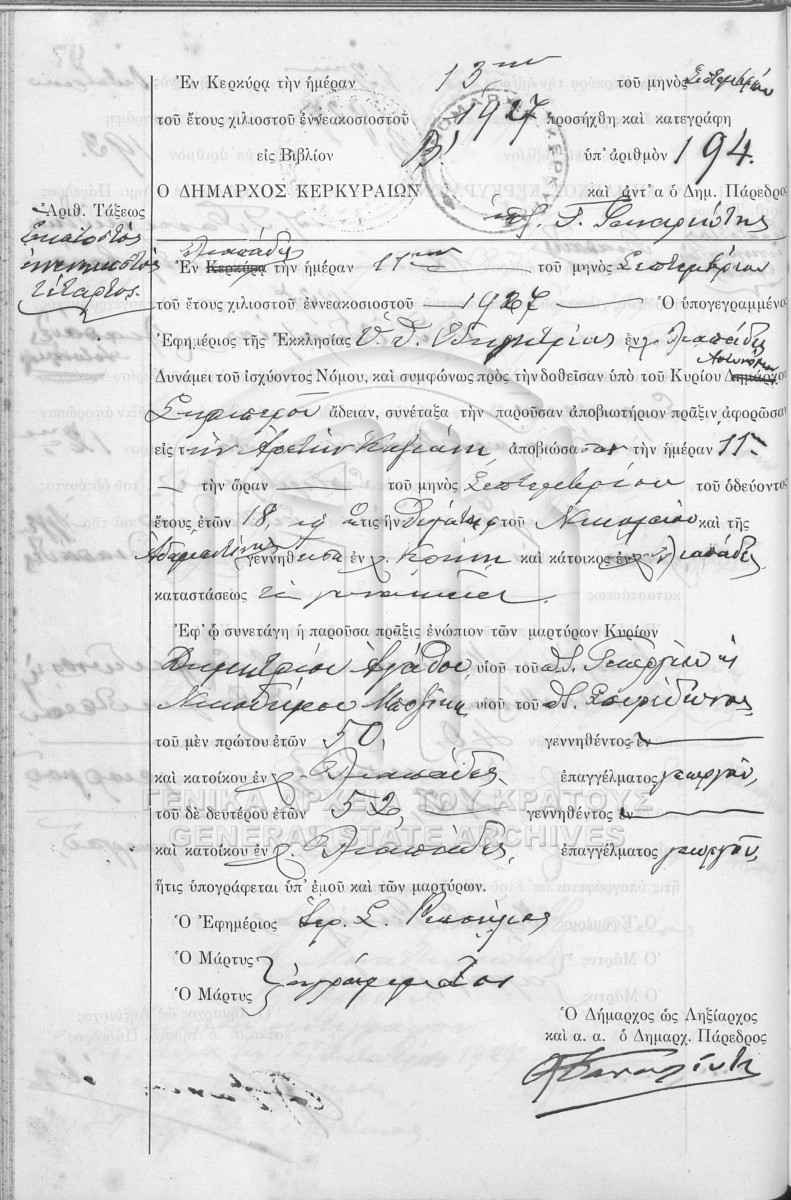 Ἐν Κερκύρᾳ τὴν ἡμέραν 13ην τοῦ μηνὸς Σεπτεμβρίου
τοῦ ἔτους χιλιοστοῦ ἐννεακοσιοστοῦ 1927 προσήχθη καὶ κατεγράφη
εἰς Βιβλίον Β' ὑπ' ἀριθμὸν 194.
Ο ΔΗΜΑΡΧΟΣ ΚΕΡΚΥΡΑΙΩΝ καὶ ἀντ' α ὁ Δημ. Πάρεδρος
Ἀριθ. Τάξεως
Ἑκατοστὸς
ἐννενηκοστὸς
τέταρτος.
Λιαπάδες
Ἐν Κερκύρᾳ τὴν ἡμέραν 11ην τοῦ μηνὸς Σεπτεμβρίου
τοῦ ἔτους χιλιοστοῦ ἐννεακοσιοστοῦ 1927 Ὁ ὑπογεγραμμένος
Ἐφημέριος τῆς Ἐκκλησίας Υ. Θ. Δημητρίας ἐν χ. Λιαπάδες
Δυνάμει τοῦ ἰσχύοντος Νόμου, καὶ συμφώνως πρὸς τὴν δοθεῖσαν ὑπὸ τοῦ Κυρίου Δημάρχου Ἀστυνόμου
Σκριπεροῦ ἄδειαν, συνέταξα τὴν παροῦσαν ἀποβιωτήριον πρᾶξιν ἀφορῶσαν
εἰς τὴν Ἀρετὴν ἀποβιώσασαν τὴν ἡμέραν 11ην
τὴν ὥραν τοῦ μηνὸς Σεπτεμβρίου τοῦ ὁδεύοντος
ἔτους ἐτῶν 18, ἥτις ἦν θυγάτηρ τοῦ Νικολάου καὶ τῆς
Ἀδαμαντίνης γεννηθεῖσα ἐν χ. καὶ κάτοικος ἐν χ. Λιαπάδες
καταστάσεως
Ἐφ' ᾧ συνετάγη ἡ παροῦσα πρᾶξις ἐνώπιον τῶν μαρτύρων Κυρίων
Δημητρίου Ἀγάθου υἱοῦ τοῦ Γεωργίου ἡ
Νικοδήμου υἱοῦ τοῦ Σπυρίδωνος
τοῦ μὲν πρώτου ἐτῶν 50, γεννηθέντος ἐν
καὶ κατοίκου ἐν χ. Λιαπάδες ἐπαγγέλματος γεωργοῦ,
τοῦ δὲ δευτέρου ἐτῶν 52, γεννηθέντος ἐν
καὶ κατοίκου ἐν χ. Λιαπάδες, ἐπαγγέλματος γεωργοῦ,
ἥτις ὑπογράφεται ὑπ' ἐμοῦ καὶ τῶν μαρτύρων.
Ὁ Ἐφημέριος Ἱερ. Σ.
Ὁ Μάρτυς
Ὁ Μάρτυς ἀγράμματοι
Ὁ Δήμαρχος ὡς Ληξίαρχος
καὶ α. α. ὁ Δημαρχ. Πάρεδρος
ΓΕΝΙΚΑ ΑΡΧΕΙΑ ΤΟΥ ΚΡΑΤΟΥΣ
GENERAL STATE ARCHIVES